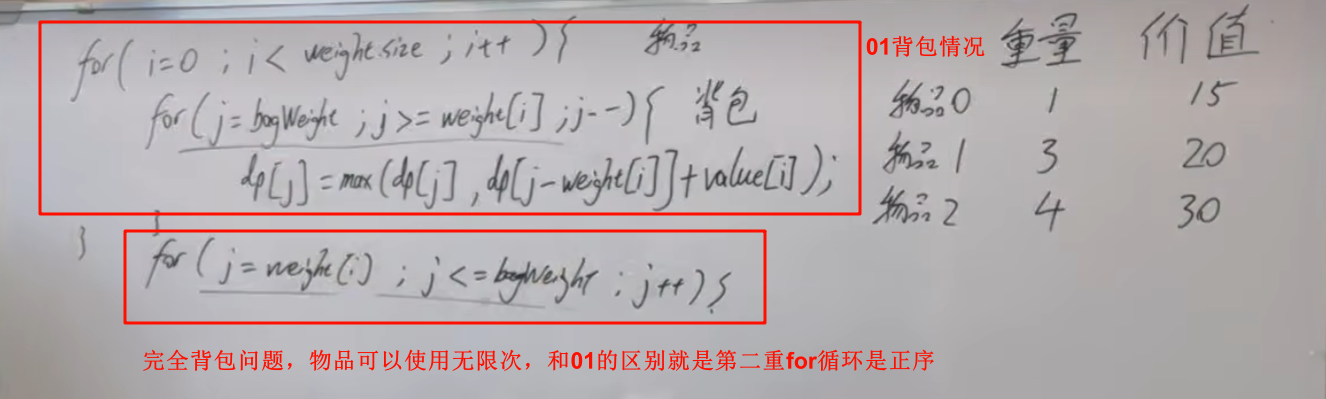 for( i=0 ; i< weight.size ; i++ ){ 物品
for( j=bagWeight ; j>= weight[i] ; j-- ){ 背包
dp[j] = max(dp[j] , dp[j-weight[i]]+value[i]);
}
}
for( j=weight[i] ; j<=bagWeight ; j++){
01背包情况
重量 价值
物品0 1 15
物品1 3 20
物品2 4 30
完全背包问题，物品可以使用无限次，和01的区别就是第二重for循环是正序